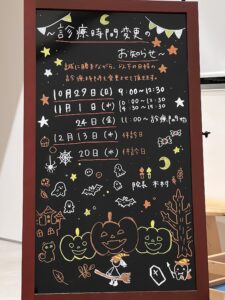 ～診療時間変更の
お知らせ～
誠に勝手ながら、以下の日時の
診療時間を変更させて頂きます。
10月29日(日) 9:00～12:30
11月1日(水)
24日(金) 11:00～診療開始
12月13日(水) 休診日
20日(水) 休診日
院長